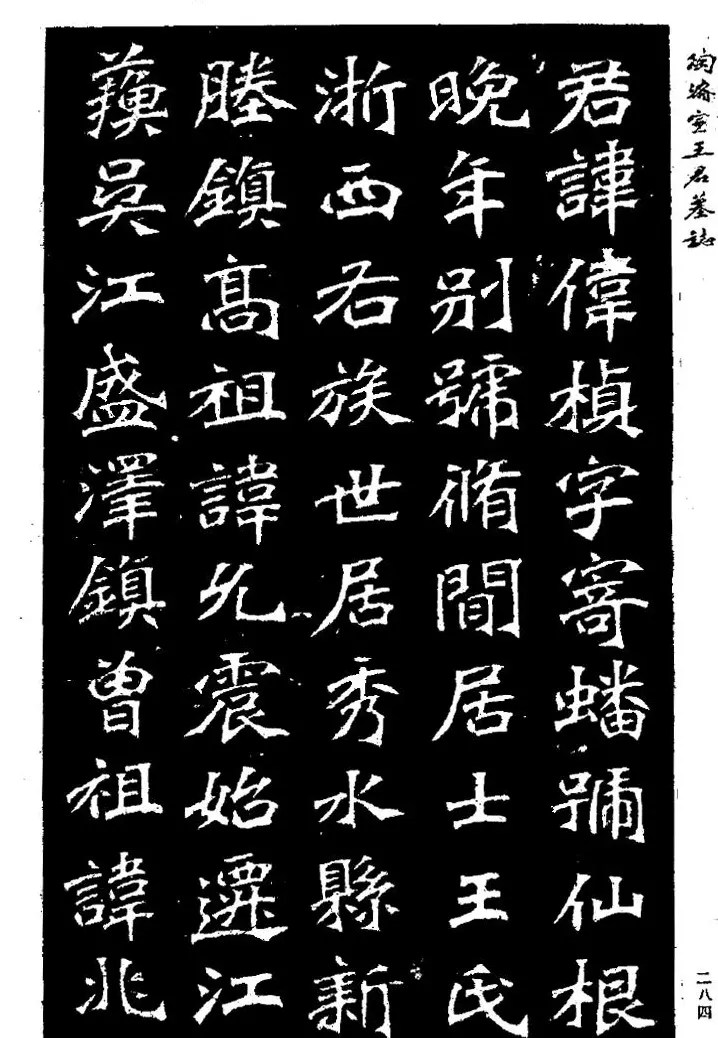 陶濬宣王君墓誌
君諱偉楨字寄蟠號仙根
晚年别號脩間居士王氏
浙西右族世居秀水縣新
塍鎮髙祖諱允震始遷江
蘓吳江盛澤鎮曾祖諱兆
二八四